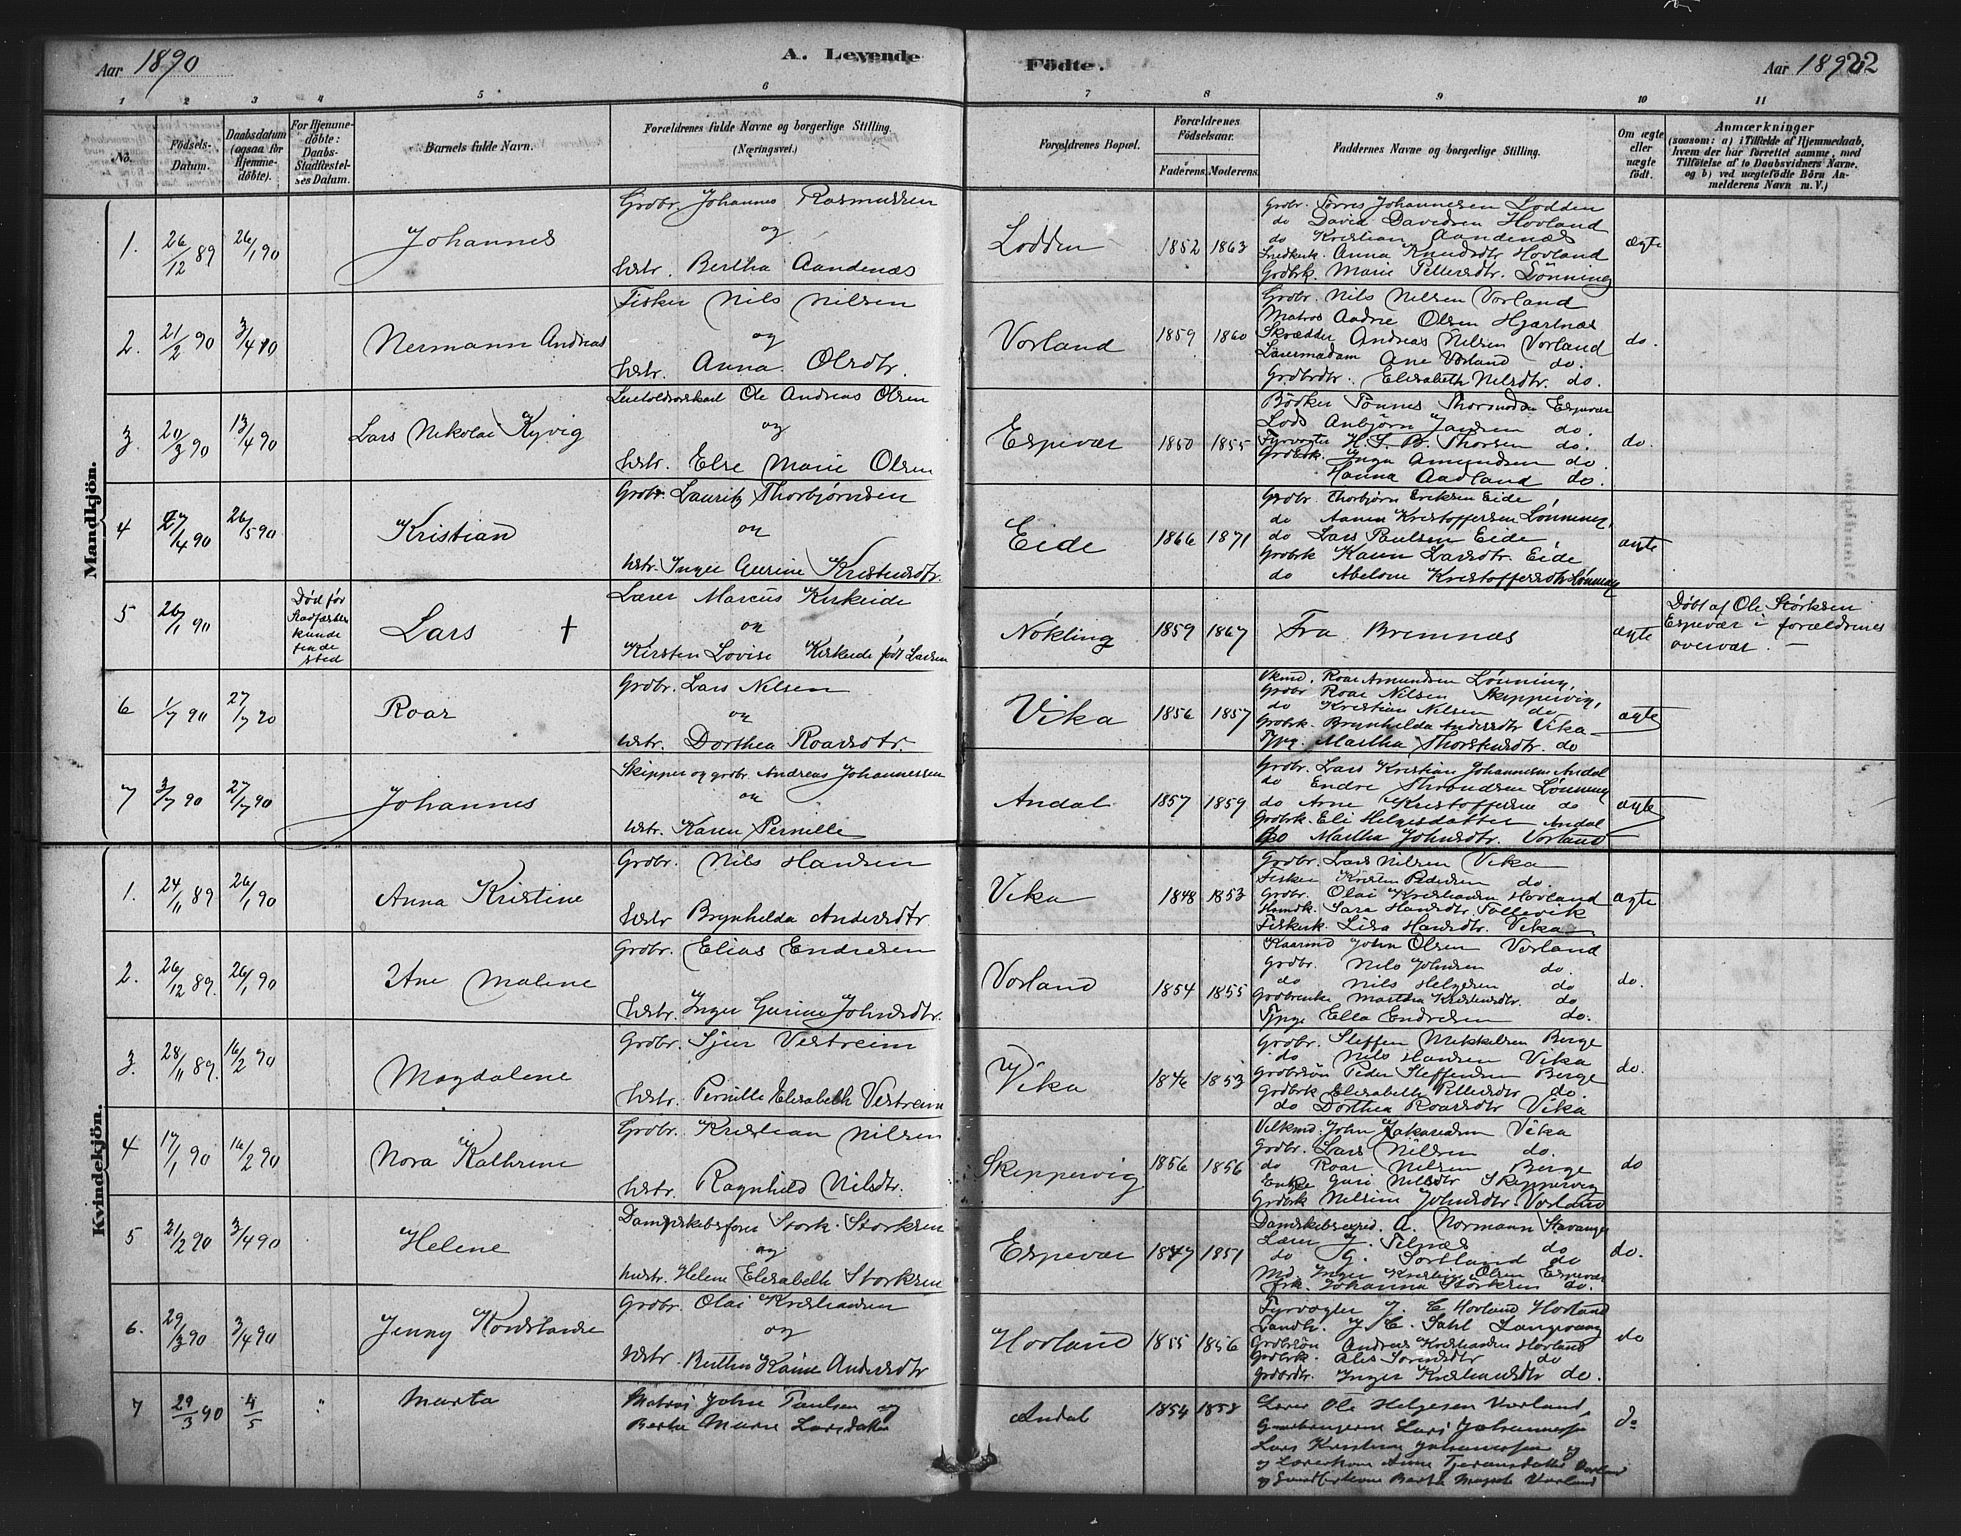 Aar 1890
A. Levende
Födte.
Aar 1890
22
1 2 3 4 5 6 7 8 9 10 11
No.
Födsels-
Datum.
Daabsdatum
(ogsaa för
Hjemme-
döbte).
For Hjemme-
döbte:
Daabs-
Stadfæstel-
ses Datum.
Barnets fulde Navn.
Forældrenes fulde Navne og borgerlige Stilling.
(Næringsvei.)
Forældrenes Bopæl.
Forældrenes
Födselsaar.
Faderens. Moderens.
Faddernes Navne og borgerlige Stilling.
Om ægte
eller
uægte
födt.
Anmærkninger
(saasom: a) i Tilfælde af Hjemmedaab,
hvem der har forrettet samme, med
Tilföielse af to Daabsvidners Navne,
og b) ved uægtefödte Börn An-
melderens Navn m. V.)
Mandkjön.
1. 26/12 89 26/1 90 Johannes
Grdbr. Johannes Rasmussen
og
hstr. Bertha Aandenæs
Lodden 1852 1863
Grdbr. Torres Johannesen Lodden
do David Davidsen Hovland
do Kristian Aandenæs
Anna Knudsdtr Hovland
Grdbrk. Marie Pettersdtr. Lønning
ægte
2. 21/2 90 3/4 90 Nermann Andreas
Fisker Nils Nilsen
og
hstr. Anna Olsdtr.
Vorland 1859 1860
Grdbr. Nils Nelsen Vorland
Matros Aadne Olsen Hjartnæs
Skrædder Andreas Nilsen Vorland
Lærermadam Ane Vorland do.
Grdbrdtr. Elisabeth Nilsdtr. do.
do.
3. 20/3 90 13/4 90 Lars Nikolai Kyvig
Ole Andreas Olsen
og
hstr. Else Marie Olsen
Espevær 1850 1855
Bödker Tönnes Thormodsen Espevær
Lods Anbjørn Jansen do.
Fyrvogter H. S. B. Thorsen do.
Grdbrk. Inga Amundsen do.
Hanna Aadland do.
do.
4 27/4 90 26/5 90 Kristian
Grdbr. Lauritz Thorbjørnsen
og
hstr. Inger Gurine Kristensdtr.
Eide 1866 1871
Grdbr. Thorbjørn Eriksen Eide
do Aanen Kristoffersen Lønning,
do Lars Paulsen Eide
Grdbrk Karen Larsdtr. Eide
do Abelone Kristoffersdtr Lønning
ægte
5 26/1 90
Død før
Stadfæstelse
kunde
finde
sted
Lars +
Lærer Marcus Kirkeide
og
Kirsten Lovise Kirkeide født Larsen
Nökling 1859 1867 Fra Bremnæs ægte
Døbt af Ole Størksen
Espevær i forældrenes
overvær. —
6 1/7 90 27/7 90 Roar
Grdbr. Lars Nelsen
og
hstr. Dorthea Roarsdtr.
Vika 1856 1857
Roar Amundsen Lønning,
Grdbr Roar Nilsen Skippervig,
do Kristian Nelsen do
Grdbrk. Brynhelda Andersdtr Vika
Martha Thorstensdtr. do
ægte
7 3/7 90 27/7 90 Johannes
Skipper og grdbr. Andreas Johannessen
og
hstr. Karen Pernille
Andal 1857 1859
Grdbr. Lars Kristian Johannesen Andal
do Endre Throndsen Lønning
do Arne Kristoffersen do
Grdbrk. Eli Helgesdatter Andal
do Martha Johnsdtr. Vorland
ægte
Kvindekjön.
1. 24/11 89 26/1 90 Anna Kristine
Grdbr. Nils Hansen
hstr Brynhelda Andersdtr.
Vika 1848 1853
Grdbr. Lars Nilsen Vika
Fisker Kristen Pedersen do.
Grdbr. Olai Kristiansen Hovland
Sara Hansdtr. Tollevik
Fiskerk. Lisa Hansdtr. Vika
ægte
2. 26/12 89. 26/1 90 Ane Malene
Grdbr. Elias Endresen
hstr. Inger Gurine Johnsdtr.
Vorland 1854 1855
Kaarmd John Olsen Vorland
Grdbr. Nils Johnsen do.
do Nils Helgesen do
Grdbrenke Martha Kristensdtr. do
Ella Endresen do.
do.
3. 28/11 89. 16/2 90 Magdalene
Grdbr. Sjur Vestreim
hstr. Pernille Elisabeth Vestreim
Vika 1846 1853
Grdbr. Steffen Mikkelsen Berge
do Nils Hansen Vika
Grdbrsön Peder Steffensen Berge
Grdbrk Elisabeth Pettersdtr do.
do Dorthea Roarsdtr Vika
do.
4 17/1 90 16/2 90 Nora Kathrine
Grdbr. Kristian Nilsen
hstr. Ragnhild Nilsdtr.
Skippervig 1856 1856
John Zakariasen Vika
Grdbr. Lars Nilsen do.
do Roar Nilsen Berge
Enke Guri Nilsdtr Skippervig
Grdbrk Nilsine Johnsdtr Vorland
do
5 21/2 90 3/4 90 Helene
Stork. Storksen
og
hustr. Helene Elisabeth Storksen
Espevær 1847 1851
A. Normann Stavanger
Lærer J. Telnæs do
do G. Sortland do
Md. Inger Kristine Olsen Espevær
frk. Johanna Störksen do.
do.
6. 29/3 90 3/4 90 Jenny Konstanse
Grdbr. Olai Kristiansen
og
hstr. Berthe Karine Andersdtr
Hovland 1855 1856
Fyrvogter J. C Hovland Hovland
Landh. J. C. Dahl Langevaag
Grdbrsön Andreas Kristiansen Hovland
Grdbrk. Alis Sorensdtr do
Grdbrdtr. Inger Kristiansdtr do.
do
7 29/3 90 4/5 " Marta
Matros John Paulsen og
Berta Marie Larsdatter
Andal 1854 1858
Lærer Ole Helgesen Vorland,
Gaardbrugerne Lars Johannessen
Lars Kristian Johannessen og
og Lærerkone Anne Vorland
og Berta Vorland
do